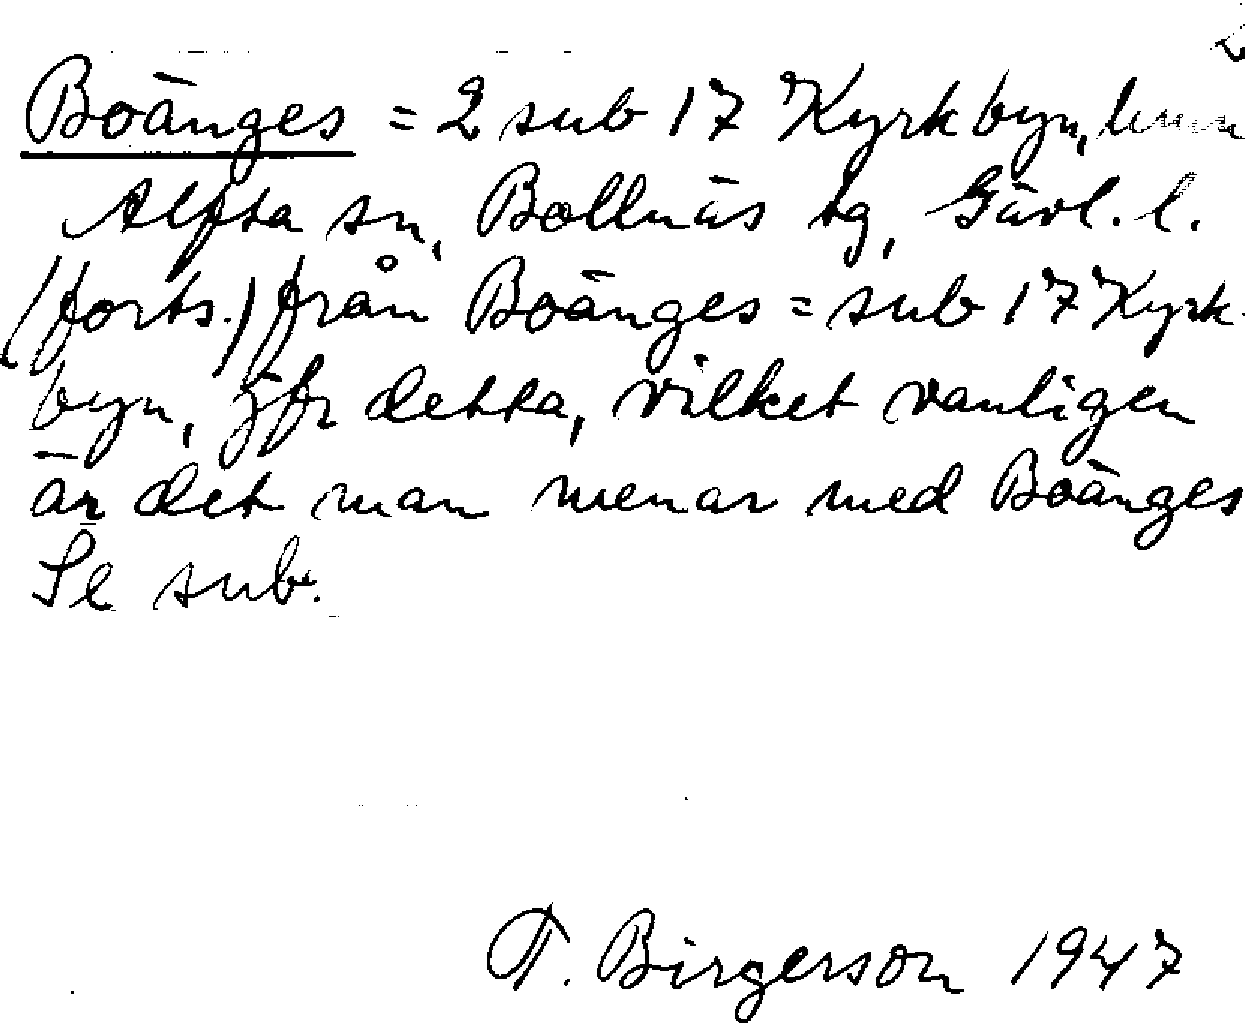 2
Boänges = 2 sub 17 Kyrkbyn, hmn
Alfta sn, Bollnäs tg, Gävl. l.
(forts.) från Boänges = sub 17 Kyrk-
byn, jfr detta, vilket vanligen
är det man menar med Boänges
Se sub.
T. Birgerson 1947